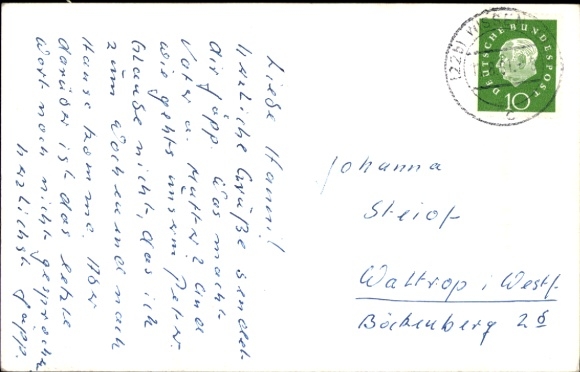 Liebe Hanni!
Herzliche Grüße sendet
dir Jäpp. Was macht
Vater u. Mutter? Und
wie gehts unserm Peter.
Glaube nicht, das ich
zum Wochenende nach
Hause komme. Aber
darüber ist das letzte
Wort noch nicht gesprochen
herzlichst Jäpp.
Johanna
Steiof
Waltrop i Westf.
Böckenberg 26
DEUTSCHE BUNDESPOST
10
(22b)
c